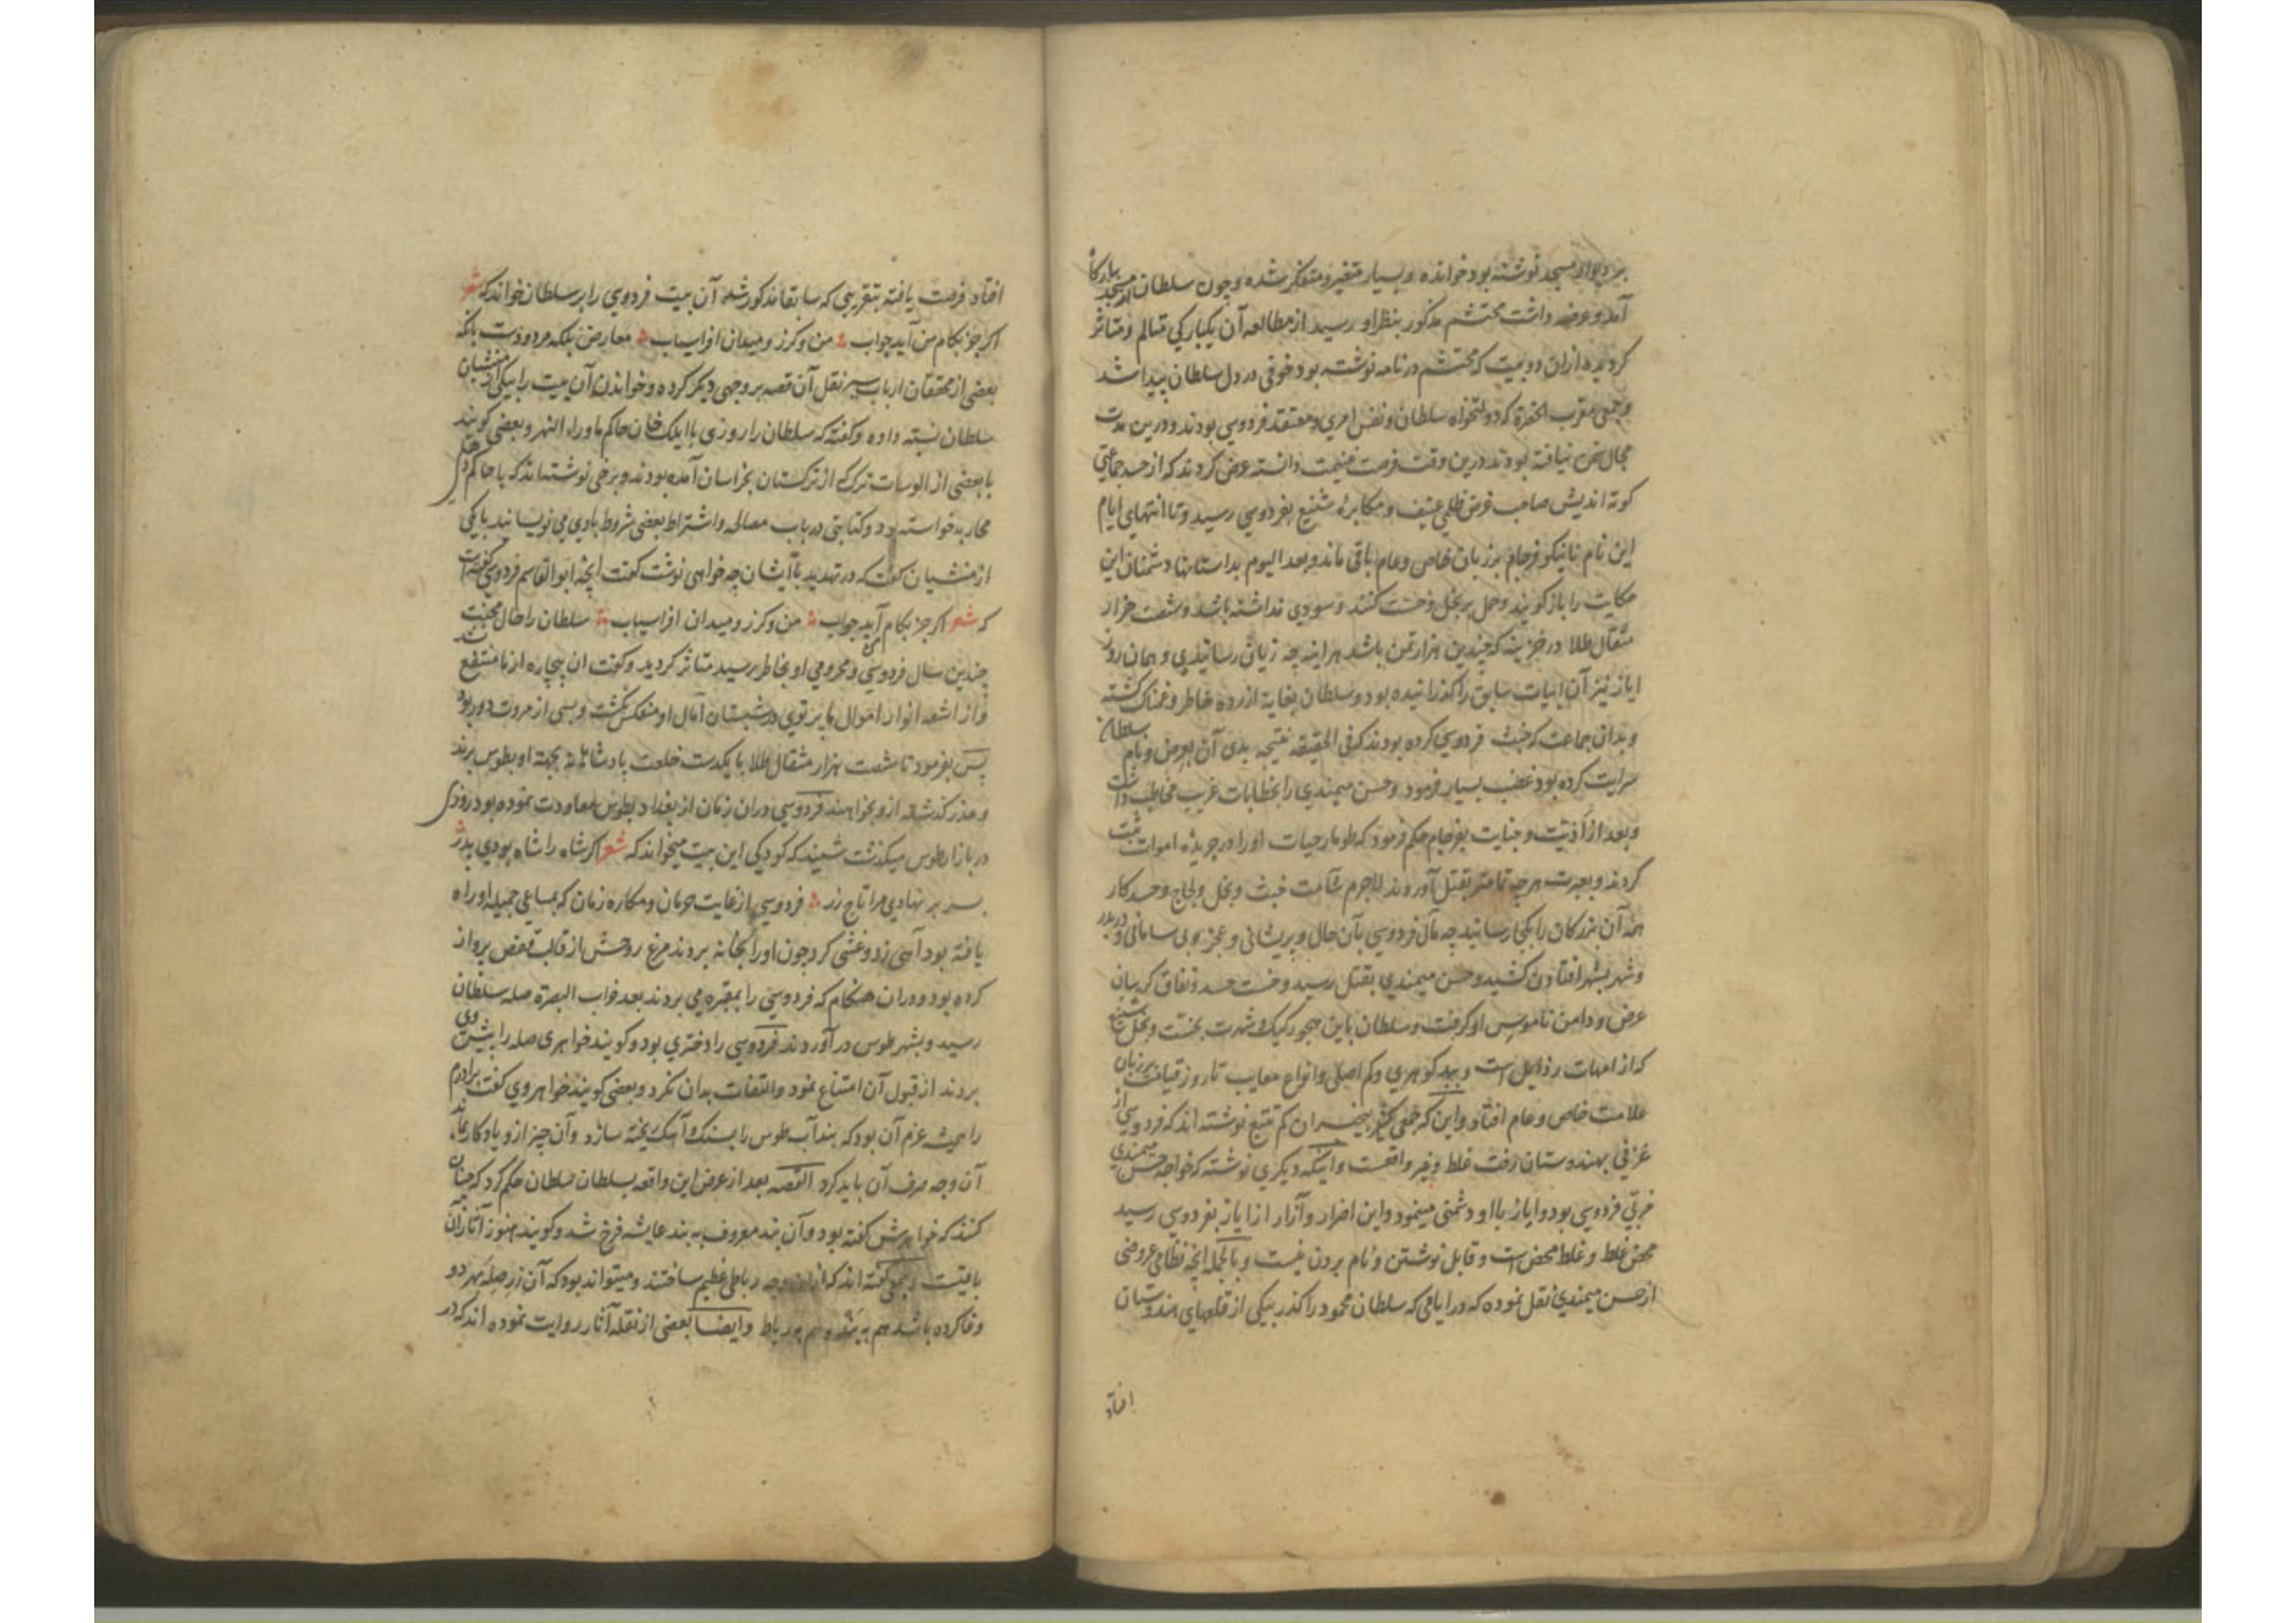 بر دیوار مسجد نوشته بود خوانده و بسیار متغیر و متفکر شده و چون سلطان از مسجد ببارگاه
آمد و عرضه داشت محتشم مذکور بنظر او رسید از مطالعه آن یکبارکی متالم و متاثر
کردیده ازان دو بیت که محتشم در نامه نوشته بود خوفی در دل سلطان پیدا شد
و جمعی مقرب الحضرة که دولتخواه سلطان و نفس امری و معتقد فردوسی بودند و درین مدت
مجال سخن نیافته بودند درین وقت فرصت غنیمت دانسته عرض کردند که از حسد جماعتی
کوته اندیش صاحب غرض ظلمی عنیف و مکابره شنیع بفردوسی رسید و تا انتهای ایام
این نام نانیکو فرجام بر زبان خاص و عام باقی ماند و بعد الیوم بداستانها دشمنان این
حکایت را باز کویند و حمل بر بخل و خست کنند و سودی نداشته باشد و شصت هزار
مثقال طلا در خزینه که چندین هزار تمن باشد هراینه چه زیان رسانیدی و همان روز
ایاز نیز آن ابیات سابق را کذرانیده بود و سلطان بغایة ازرده خاطر و غمناک کشته
و بدان جماعت که خبث فردوسی کرده بودند که فی الحقیقه نتیجه بدی آن بعرض و نام سلطان
سرایت کرده بود غضب بسیار فرمود و حسن میمندی را بخطابات غریب مخاطب داشت
و بعد از اذیت و جنایت بفرجام حکم فرمود که طومار حیات او را در جریده اموات ثبت
کردند و بعبرت هر چه تمامتر بقتل آوردند لاجرم شآمت خبث و بخل و لجاج و حسد کار
همه آن بزرکان را بجای رسانید چه مآل فردوسی بآن حال و پریشانی و عجز و بی سامانی و در بدر
و شهر بشهر افتادن کشید و حسن میمندی بقتل رسید و خست حسد و نفاق کریبان
عرض و دامن ناموس او کرفت و سلطان باین هجو رکیک و شهرت بخست و بخل
که از امهات رذایل است و ببد کوهری و کم اصلی و انواع معایب تا روز قیامت بر زبان
علامت خاص و عام افتاد و این که جمعی بیخبران کم تتبع نوشته اند که فردوسی از
غزنی بهندوستان رفت غلط و غیر واقعست و اینکه دیکری نوشته که خواجه حسن میمندی
مربی فردوسی بود و ایاز باو دشمنی مینمود و این اضرار و آزار از ایاز بفردوسی رسید
محض غلط و غلط محض است و قابل نوشتن و نام بردن نیست و بالجمله انچه نظامی عروضی
از حسن میمندی نقل نموده که در ایامی که سلطان محمود را کذر بیکی از قلعهای هندوستان
افتاد
افتاد فرصت یافته بتقریبی که سابقا مذکور شد آن بیت فردوسی را بر سلطان خواند که شعر
اکر جز بکام من آید جواب من و کرز و میدان افراسیاب معارض بلکه مردودست بانکه
بعضی از محققان ارباب سیر نقل آن قصه بر وجهی دیکر کرده و خواندن آن بیت را بیکی از منشیان
سلطان نسبته داده و کفته که سلطان را روزی با ایلک خان حاکم ماوراء النهر و بعضی کویند
با بعضی از الوسات ترک که از ترکستان بخراسان آمده بودند و برخی نوشته اند که با حاکم دهلی
محاربه خواسته بود و کتابتی در باب مصالحه و اشتراط بعضی شروط باوی می نویسانید با یکی
از منشیان کفت که در تهدید با ایشان چه خواهی نوشت کفت انچه ابو القاسم فردوسی کفته است
که شعر اکر جز بکام من آید جواب من و کرز و میدان افراسیاب سلطان را حال محنت
چندین سال فردوسی و محرومی او بخاطر رسید متاثر کردید و کفت ان بیچاره از ما منتفع نشد
و از اشعه انوار اموال ما پرتوی در شبستان آمال او منعکس نکشت و بسی از مروت دور بود
پس بفرمود تا شصت هزار مثقال طلا با یکدست خلعت پادشاهانه بجهة او بطوس برند
و عذر کذشته ازو بخواهند فردوسی دران زمان از بغداد بطوس معاودت نموده بود روزی
در بازار طوس میکذشت شنید که کودکی این بیت میخواند که شعر اکر شاه را شاه بودی پدر
بسر بر نهادی مرا تاج زر فردوسی از غایت حرمان و مکاره زمان که بمساعی جمیله او راه
یافته بود آهی زد و غشی کرد چون او را بخانه بردند مرغ روحش از قالب قفص پرواز
کرده بود و دران هنکام که فردوسی را بمقبره می بردند بعد خواب البصرة صله سلطان
رسید و بشهر طوس در آوردند فردوسی را دختری بود و کویند خواهری صله را پیش وی
بردند از قبول آن امتناع نمود و التفات بدان نکرد و بعضی کویند خواهر وی کفت برادرم
را همیشه عزم آن بود که بند آب طوس را بسنک و آهک ریخته سازد و آن چیز ازو یادکار بماند
آن وجه صرف آن باید کرد القصه بعد از عرض این واقعه بسلطان سلطان حکم کرد که چنان
کنند که خواهرش کفته بود و آن بند معروف به بند عایشه فرخ شد و کویند هنوز آثار آن
باقیست و بعضی کفته اند که ازان وجه رباطی عظیم ساختند و میتواند بود که آن زر صله بهر دو
وفا کرده باشد هم به بند و هم به رباط و ایضا بعضی از نقله آثار روایت نموده اند که در